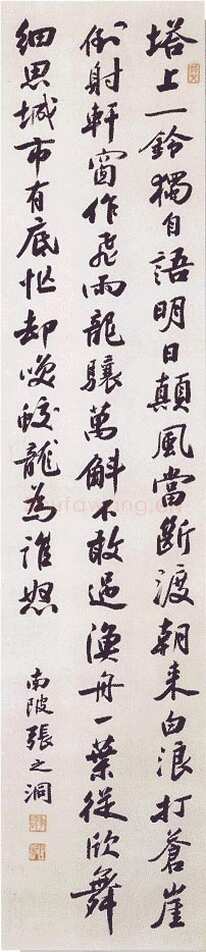 塔上一鈴獨自語明日顛風當斷渡朝來白浪打蒼崖
倒射軒窗作飛雨龍驤萬斛不敢過漁舟一葉從欣舞
細思城市有底忙却笑蛟龍為誰怒
南陂張之洞